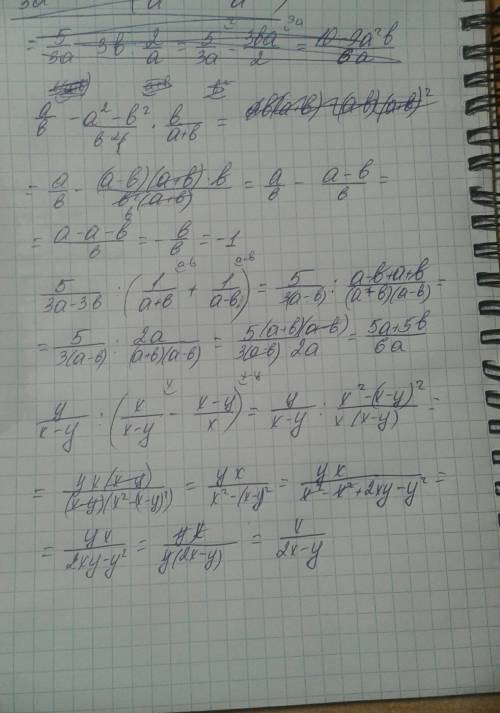 = 5/3a - 3b · 2/a = 5/3a - 3ba/2 = 10-9a²b/6a
a/b - a²-b²/b² · b/a+b =
= a/b - (a-b)(a+b)·b/b²(a+b) = a/b - a-b/b =
= a-a-b/b = -b/b = -1
5/3a-3b : (1/a+b + 1/a-b) = 5/3(a-b) : a-b+a+b/(a+b)(a-b) =
= 5/3(a-b) : 2a/(a+b)(a-b) = 5(a+b)(a-b)/3(a-b)2a = 5a+5b/6a
y/x-y : (x/x-y - x-y/x) = y/x-y : x²-(x-y)²/x(x-y) =
= yx(x-y)/(x-y)(x²-(x-y)²) = yx/x²-(x-y² = yx/x²-x²+2xy-y² =
= yx/2xy-y² = yx/y(2x-y) = x/2x-y